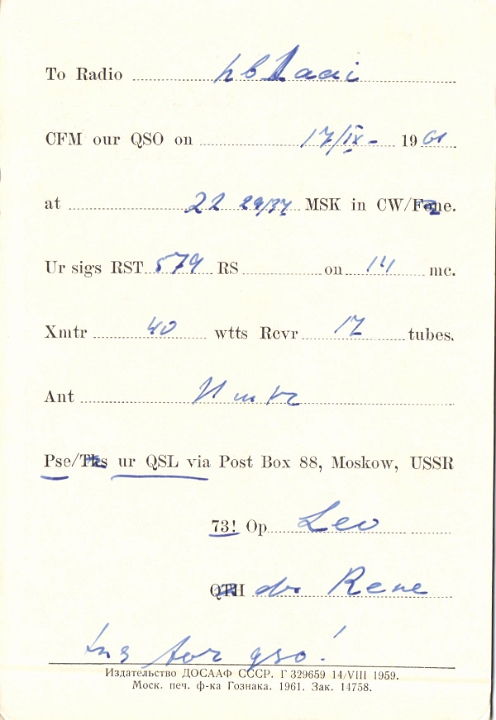 To Radio hb1aai
CFM our QSO on 17/IX- 1961
at 22 29/34 MSK in CW/Fone.
Ur sigs RST 579 RS on 14 mc.
Xmtr 40 wtts Rcvr 12 tubes.
Ant
Pse/Tks ur QSL via Post Box 88, Moskow, USSR
73! Op Leo
QTH dr Rene
tns for qso!
Издательство ДОСААФ СССР. Г 329659 14/VIII 1959.
Моск. печ. ф-ка Гознака. 1961. Зак. 14758.